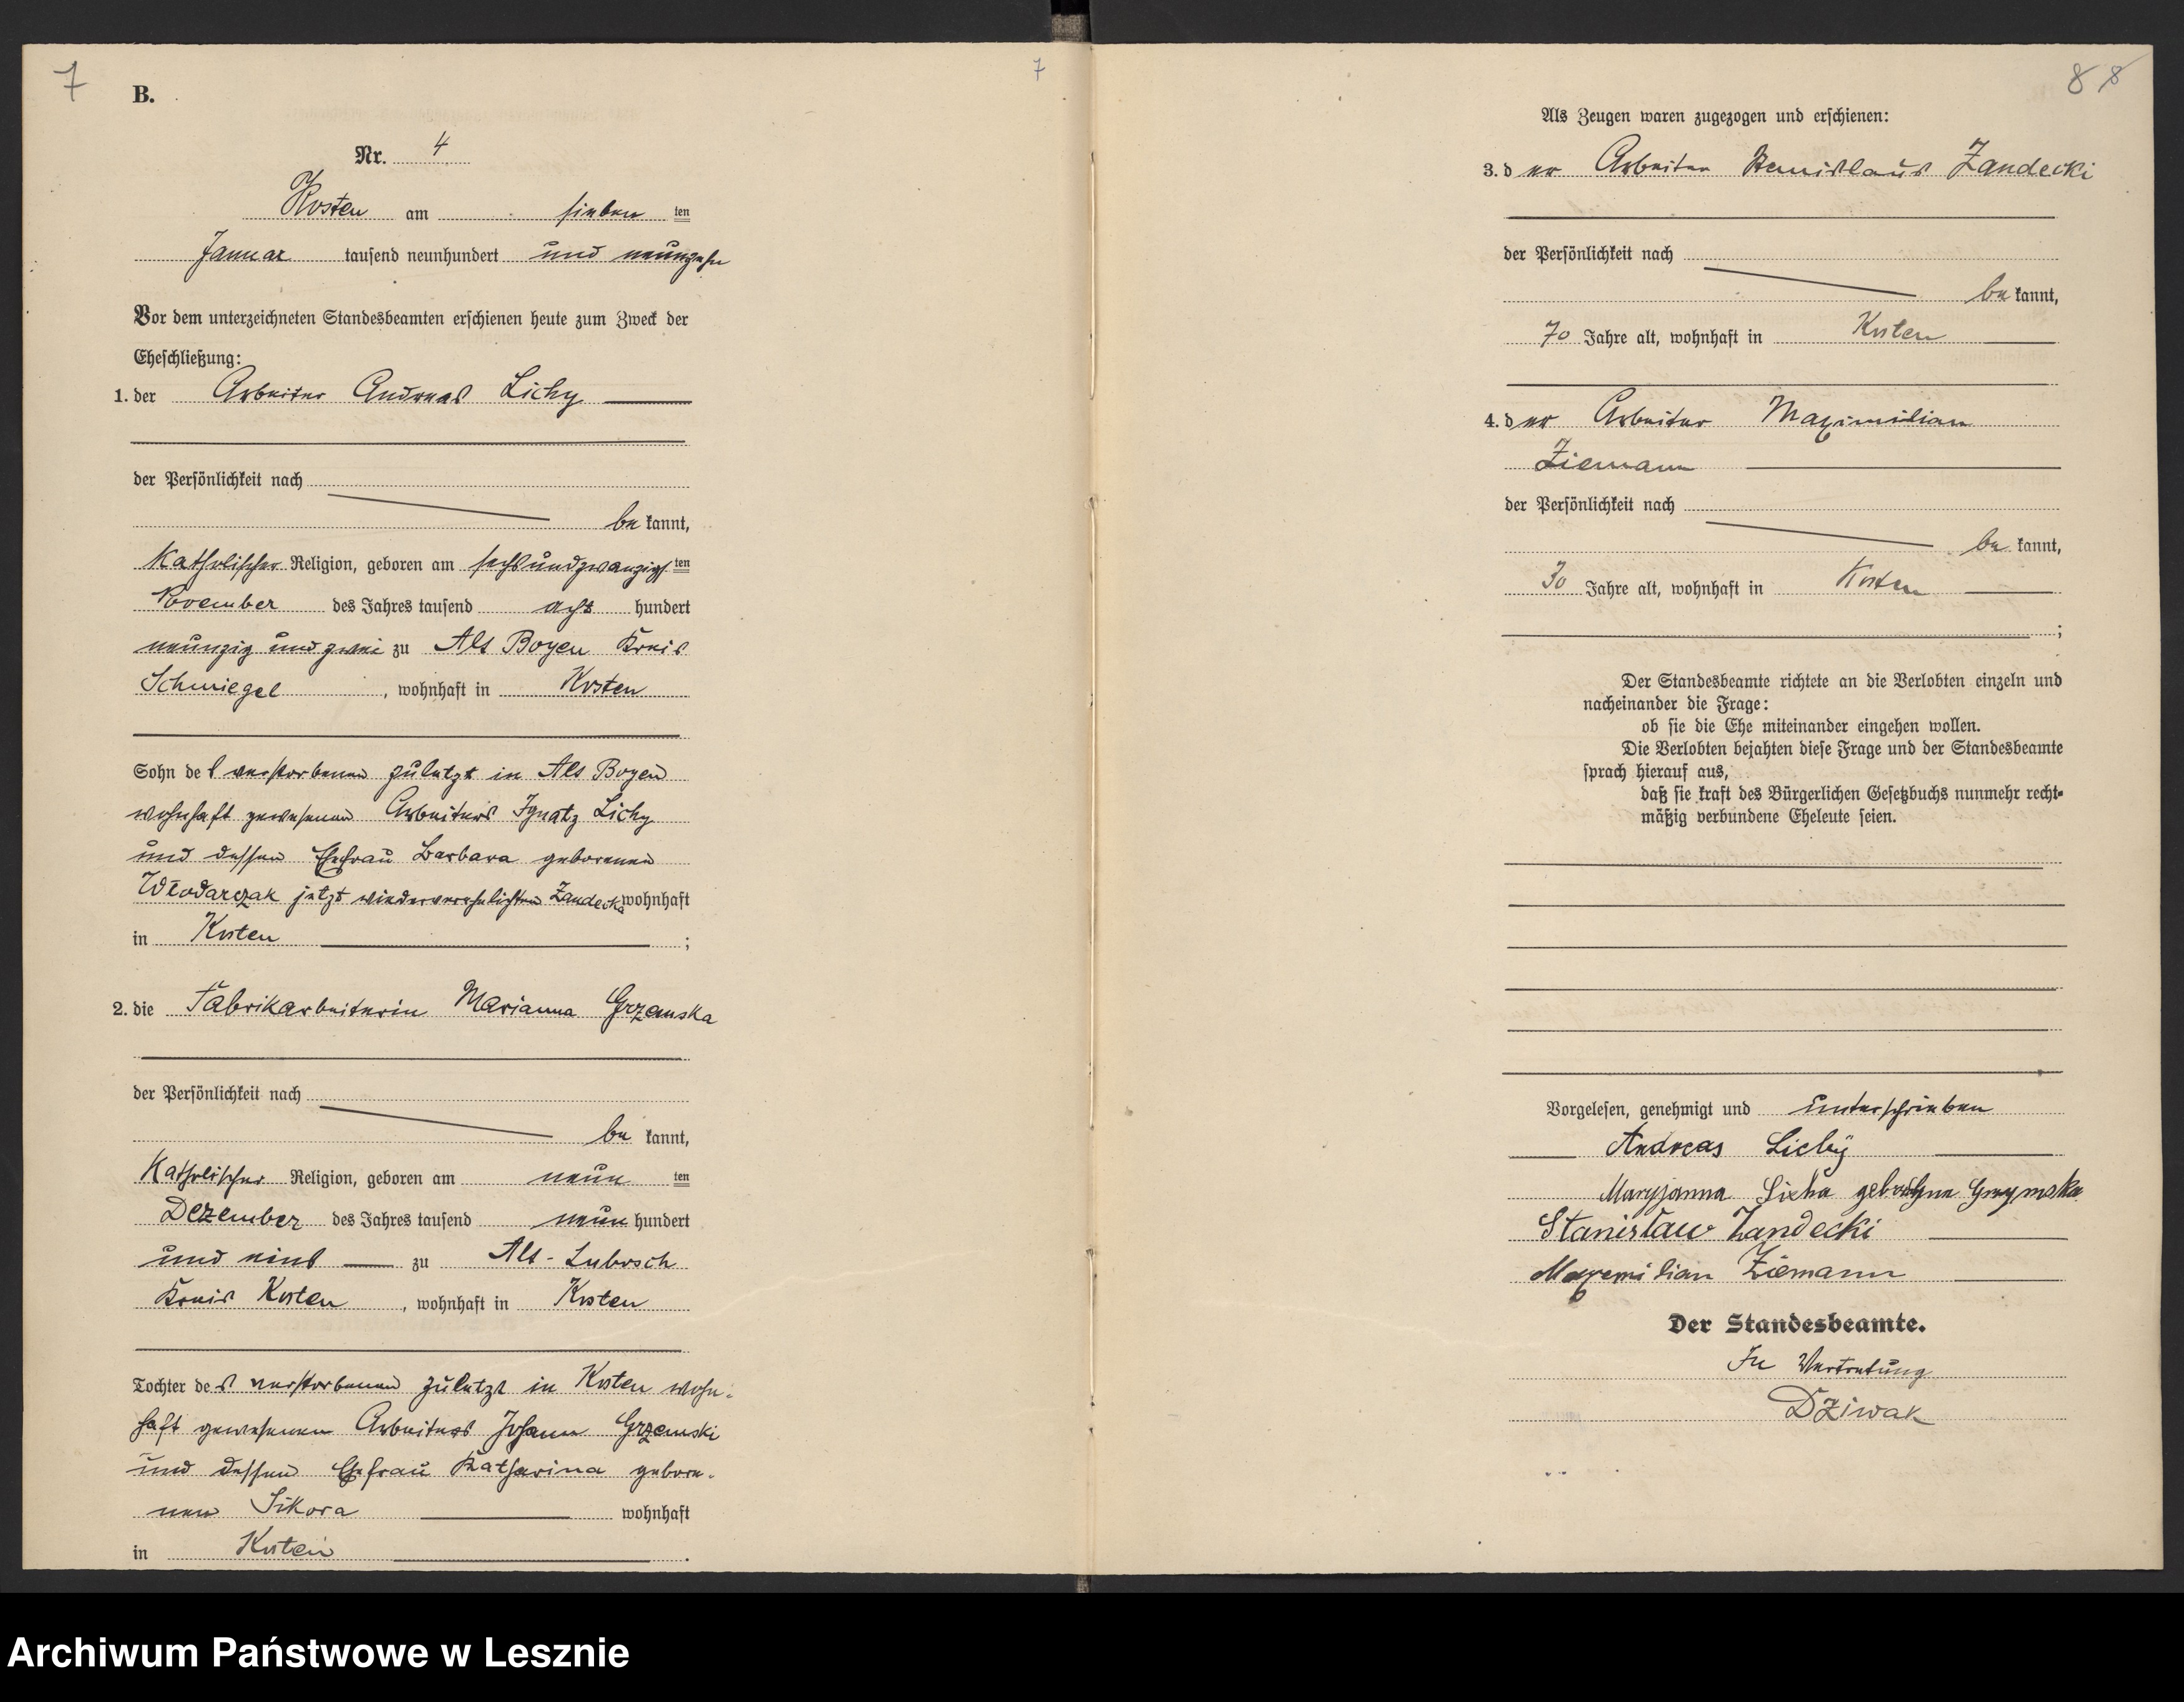 7
B.
7
Nr. 4
Kosten am sieben ten
Januar tausend neunhundert und neunzehn
Vor dem unterzeichneten Standesbeamten erschienen heute zum Zweck der
Eheschließung:
1. der Arbeiter Andreas Lichy
der Persönlichkeit nach
be kannt,
Katholischer Religion, geboren am sechsundzwanzigs ten
November des Jahres tausend acht hundert
neunzig und zwei zu Alt Boyen Kreis
Schmiegel, wohnhaft in Kosten
Sohn des verstorbenen zuletzt in Alt Boyen
wohnhaft gewesenen Arbeiters Ignatz Lichy
und dessen Ehefrau Barbara geborenen
Włodarczak jetzt wiederverehelichten Zandecka wohnhaft
in Kosten ;
2. die Fabrikarbeiterin Marianna Grzemska
der Persönlichkeit nach
be kannt,
Katholischer Religion, geboren am neun ten
Dezember des Jahres tausend neun hundert
und eins zu Alt-Lubosch
Kreis Kosten, wohnhaft in Kosten
Tochter des verstorbenen zuletzt in Kosten wohn-
haft gewesenen Arbeiters Johann Grzemski
und dessen Ehefrau Katharina gebore-
nen Sikora wohnhaft
in Kosten .
8 8
Als Zeugen waren zugezogen und erschienen:
3. der Arbeiter Stanislaus Zandecki
der Persönlichkeit nach
be kannt,
70 Jahre alt, wohnhaft in Kosten
4. der Arbeiter Maximilian
Ziemann
der Persönlichkeit nach
be kannt,
30 Jahre alt, wohnhaft in Kosten
;
Der Standesbeamte richtete an die Verlobten einzeln und
nacheinander die Frage:
ob sie die Ehe miteinander eingehen wollen.
Die Verlobten bejahten diese Frage und der Standesbeamte
sprach hierauf aus,
daß sie kraft des Bürgerlichen Gesetzbuchs nunmehr recht-
mäßig verbundene Eheleute seien.
Vorgelesen, genehmigt und unterschrieben
Andreas Lichy
Maryjanna Licha
Stanisław Zandecki
Maxemilian Ziemann
Der Standesbeamte.
In Vertretung
Dziwak
Archiwum Państwowe w Lesznie